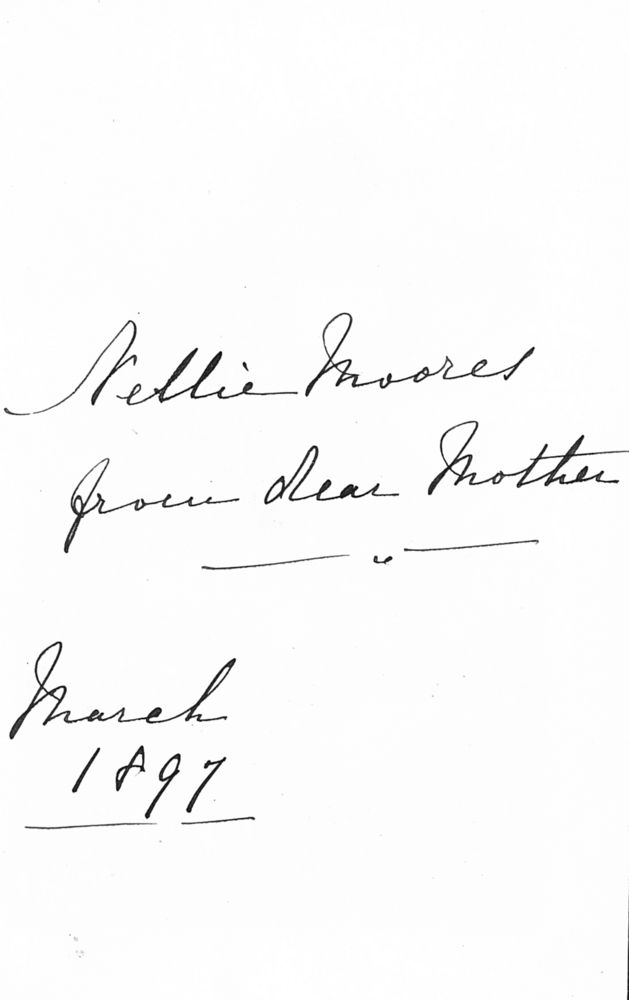 Nellie Moores
from dear Mother
March
1897